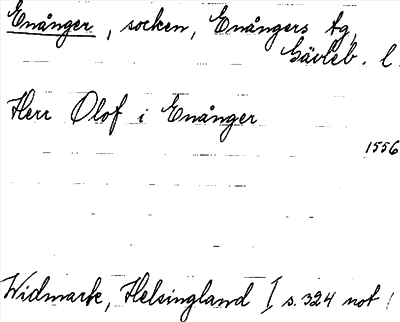 Enånger, socken, Enångers tg,
Gävleb. l.
Herr Olof i Enånger
1556
Widmark, Helsingland I s. 324 not 1